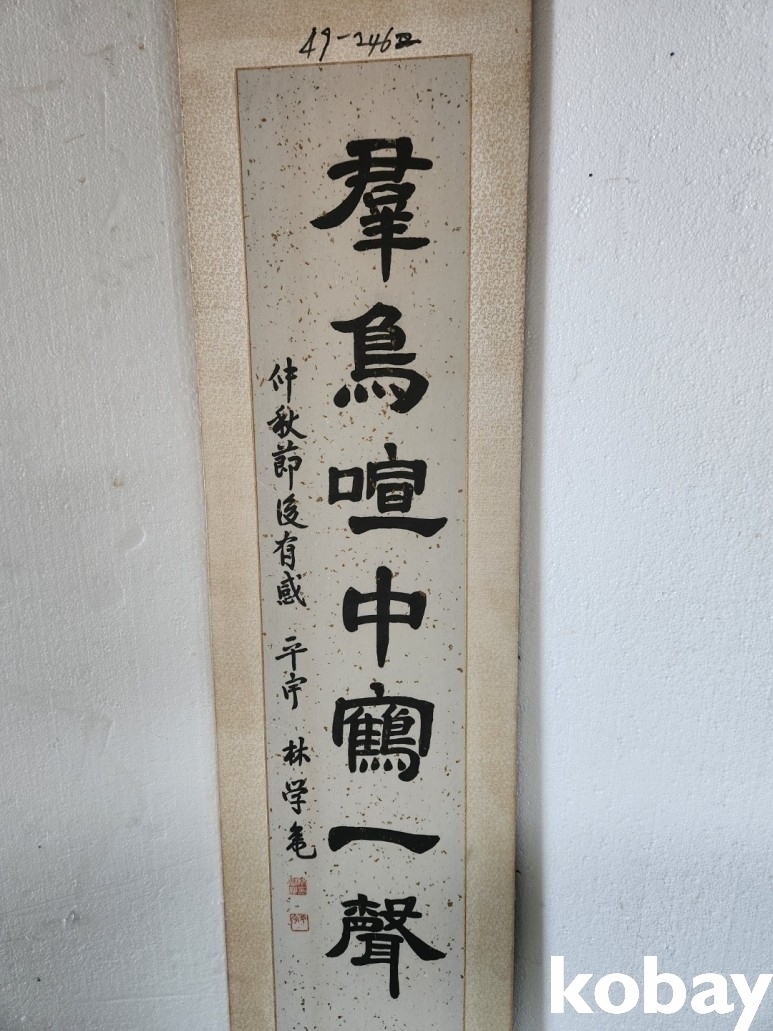 49-246
羣鳥喧中鶴一聲
仲秋節後有感 平宇 林学亀
kobay